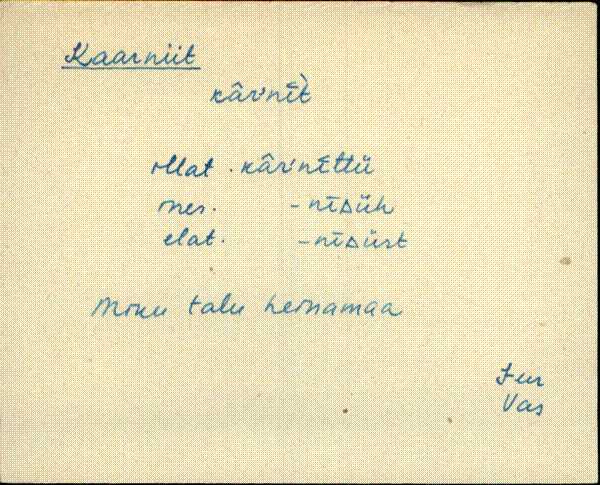 Kaarniit
kâŕńīt̀
illat. kâŕńīttü
ines. -nīᴅüh
elat. -nīᴅüst
Miku talu heinamaa
Jur
Vas